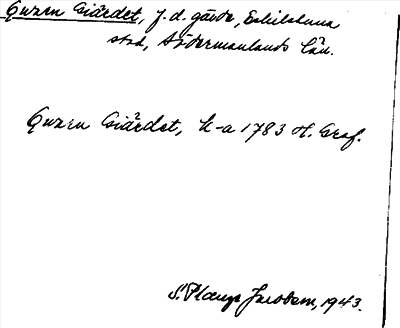 Qvarn Giärdet, f. d. gärde, Eskilstuna
stad, Södermanlands län.
Qvarn Giärdet, k-a 1783 H. Graf.
S. Plaug Jacobsen, 1943.